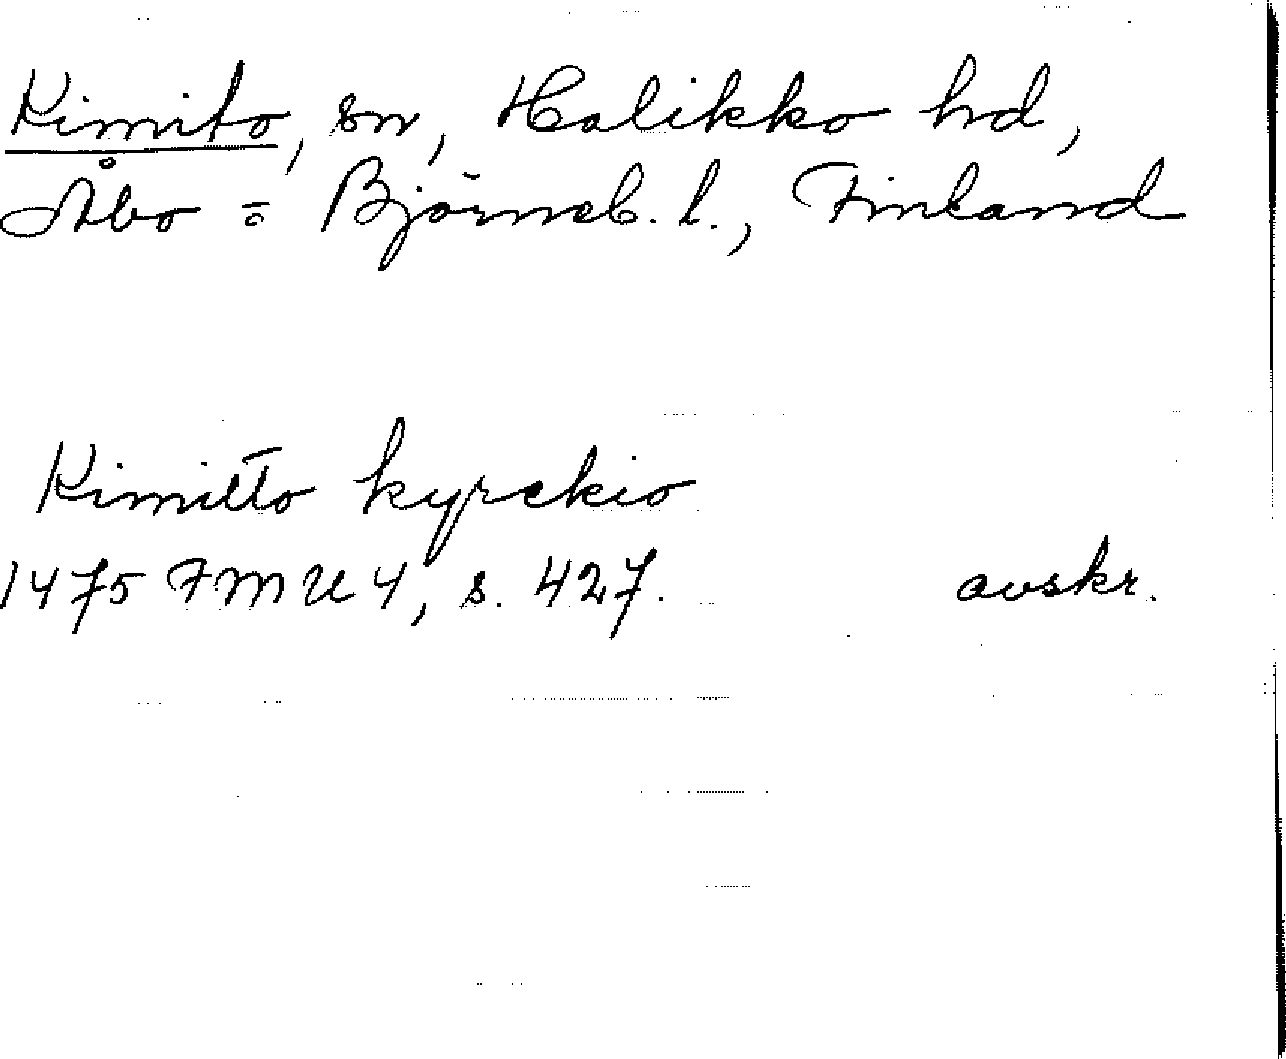 Kimito, sn, Halikko hd,
Åbo = Björneb. l., Finland
Kimitto kyrckio
1475 FMU 4, s. 427. avskr.